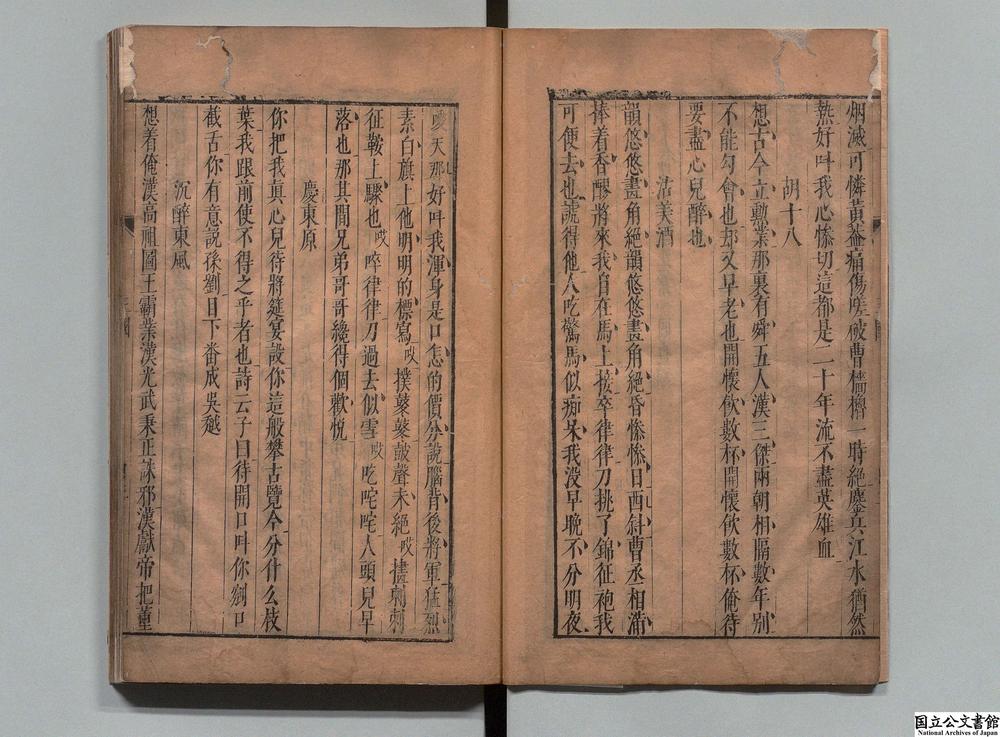 烟滅可憐黃蓋痛傷嗟破曹檣櫓一時絕鏖兵江水猶然
熱好呌我心慘切這都是二十年流不盡英雄血
胡十八
想古今立勳業那裏有舜五人漢三傑兩朝相隔數年別
不能勾會也却又早老也開懷飲數杯開懷飲數杯俺待
要盡心兒醉也
沽美酒
韻悠悠畫角絕韻悠悠畫角絕昏慘慘日酉斜曹丞相滿
捧着香醪將來我自在馬上接卒律律刀挑了錦征袍我
可便去也諕得他人吃驚馬似痴呆我沒早晚不分明夜
天那好呌我渾身是口怎的價分說腦背後將軍猛烈
素白旗上他明明的標寫哎撲鼕鼕鼓聲未絕哎㨪剌剌
征鞍上驟也哎啐律律刀過去似雪哎吃咤咤人頭兒早
落也那其間兄弟哥哥纔得個歡悅
慶東原
你把我真心兒待將筵宴設你這般攀古覽今分什么枝
葉我跟前使不得之乎者也詩云子曰待開口呌你剜口
截舌你有意說孫劉目下番成吳越
沉醉東風
想着俺漢高祖圖王霸業漢光武秉正誅邪漢獻帝把董
国立公文書館
National Archives of Japan